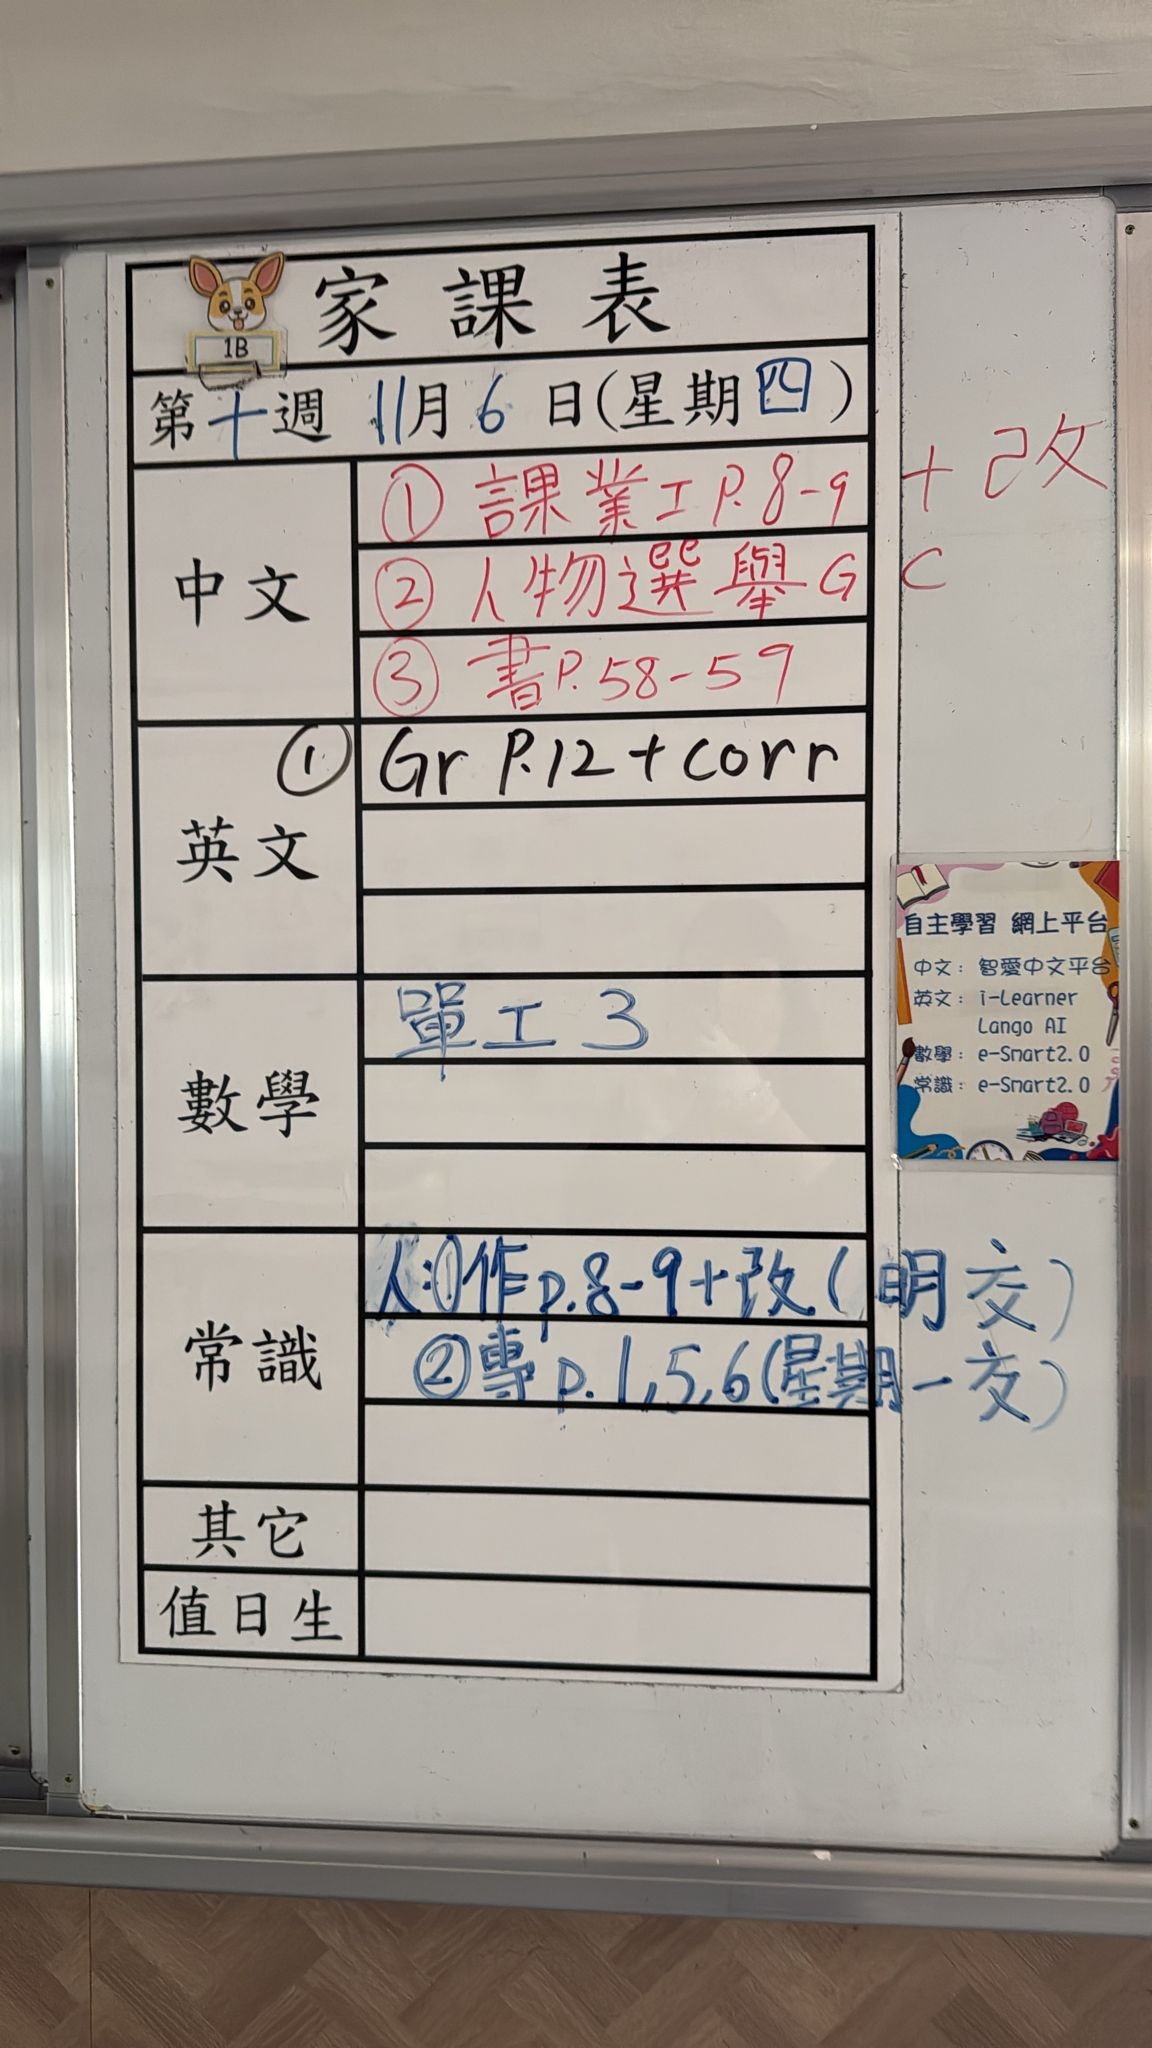 家課表
1B
第十週 11月6日(星期四)
中文
① 課業工P.8-9 + 改
② 人物選舉GC
③ 書P.58-59
英文
① Gr P.12 + corr
數學
單工3
常識
人:①作p.8-9+改(明交)
②專p.1,5,6(星期一交)
其它
值日生
自主學習 網上平台
中文: 智愛中文平台
英文: i-Learner
Lango AI
數學: e-Smart2.0
常識: e-Smart2.0